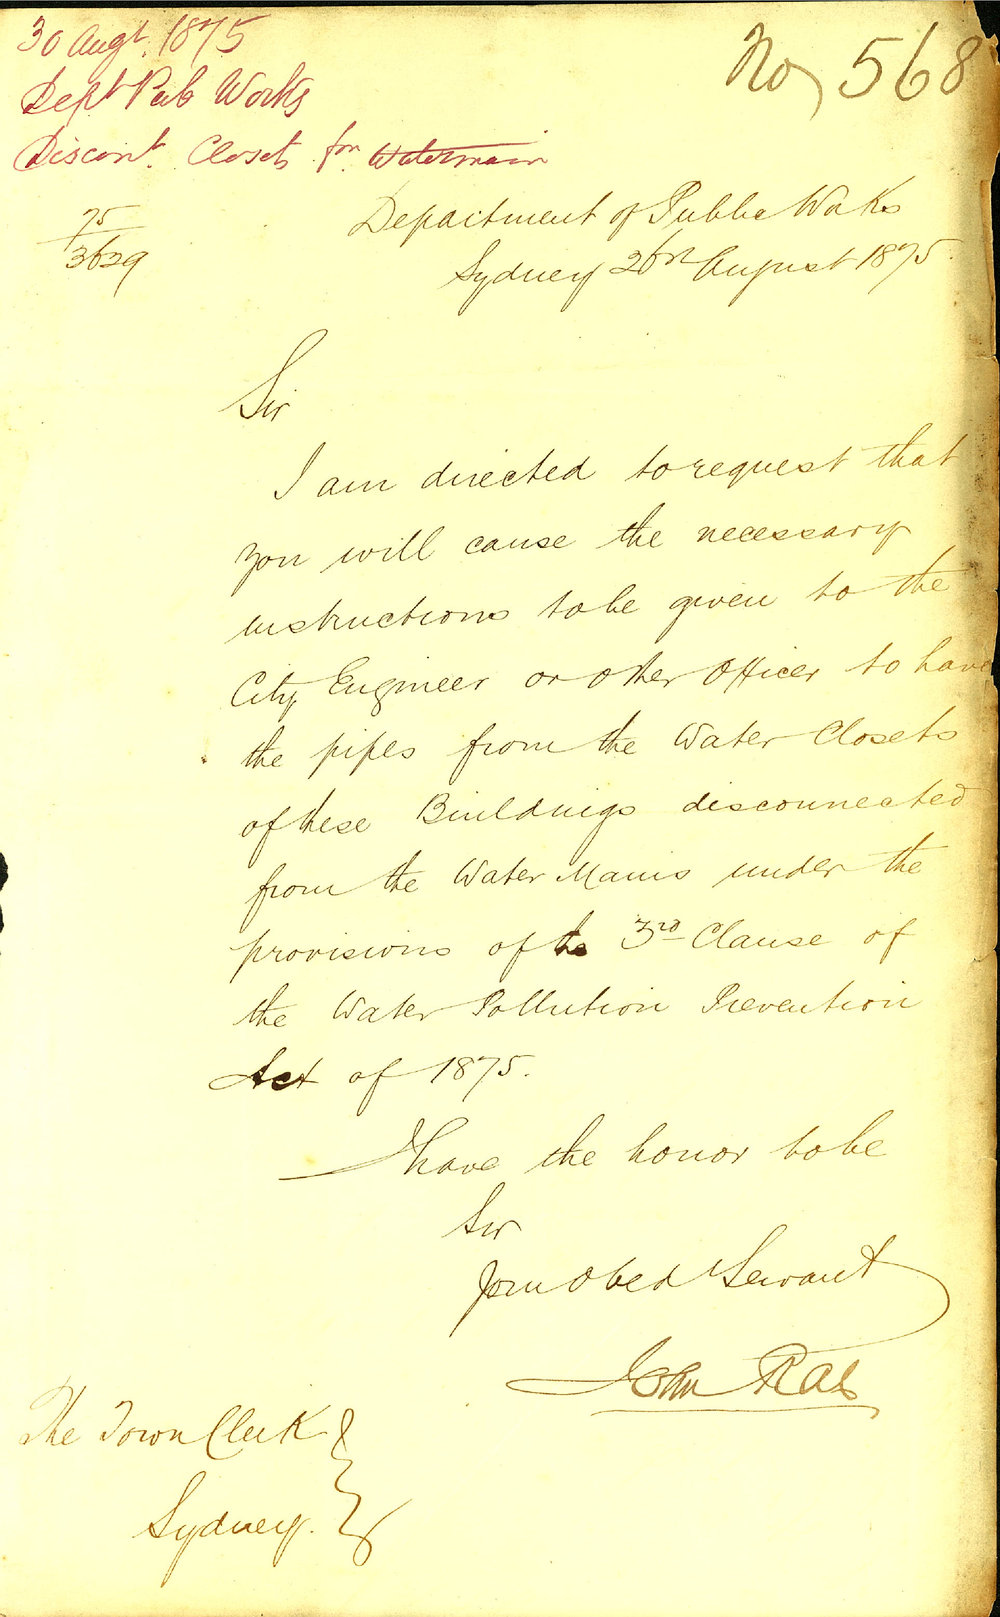 30 Augt. 1875
No, 568
Dept Pub Works
Discont. Closets fm Watermain
75
3629
Department of Public Works
Sydney 26th August 1875.
Sir
I am directed to request that
you will cause the necessary
instructions to be given to the
City Engineer or other Officer to have
the pipes from the Water Closets
of these Buildings disconnected
from the Water Mains under the
provisions of the 3rd Clause of
the Water Pollution Prevention
Act of 1875.
I have the honor to be
Sir
Your Obed Servant
John Rae
The Town Clerk
Sydney.